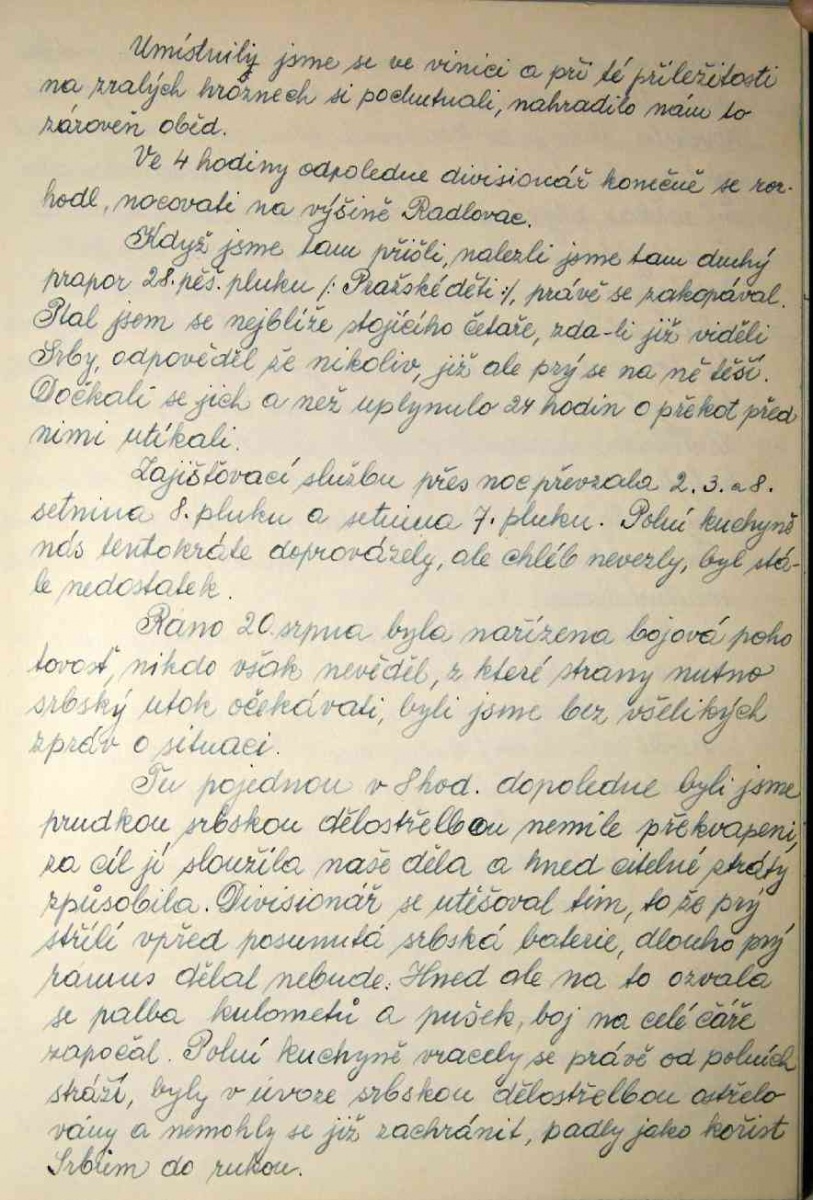 Umístnily jsme se ve vinici a při té příležitosti
na zralých hrôznech si pochutnali, nahradilo nám to
zároveň oběd.
Ve 4 hodiny odpoledne divisionář konečně se roz-
hodl, nocovati na výšině Radlovac.
Když jsme tam přišli, nalezli jsme tam druhý
prapor 28. pěš. pluku /: Pražské děti :/, právě se zakopával.
Ptal jsem se nejblíže stojícího četaře, zda-li již viděli
Srby, odpověděl že nikoliv, již ale prý se na ně těší.
Dočkali se jich a než uplynulo 24 hodin o překot před
nimi utíkali.
Zajišťovací službu přes noc převzala 2. 3. a 8.
setnina 8. pluku a setnina 7. pluku. Polní kuchyně
nás tentokráte doprovázely, ale chléb nevezly, byl stá-
le nedostatek.
Ráno 20. srpna byla nařízena bojová poho
tovosť, nikdo však nevěděl, z které strany nutno
srbský utok očekávati, byli jsme bez všelikých
zpráv o situaci.
Tu pojednou v 8 hod. dopoledne byli jsme
prudkou srbskou dělostřelbou nemile překvapeni,
za cíl jí sloužila naše děla a hned citelné ztráty
způsobila. Divisionář se utěšoval tím, to že prý
střílí vpřed posunutá srbská baterie, dlouho prý
ramus dělat nebude. Hned ale na to ozvala
se palba kulometů a pušek, boj na celé čáře
započal. Polní kuchyně vracely se právě od polních
stráží, byly v úvoze srbskou dělostřelbou ostřelo
vány a nemohly se již zachránit, padly jako kořist
Srbům do rukou.